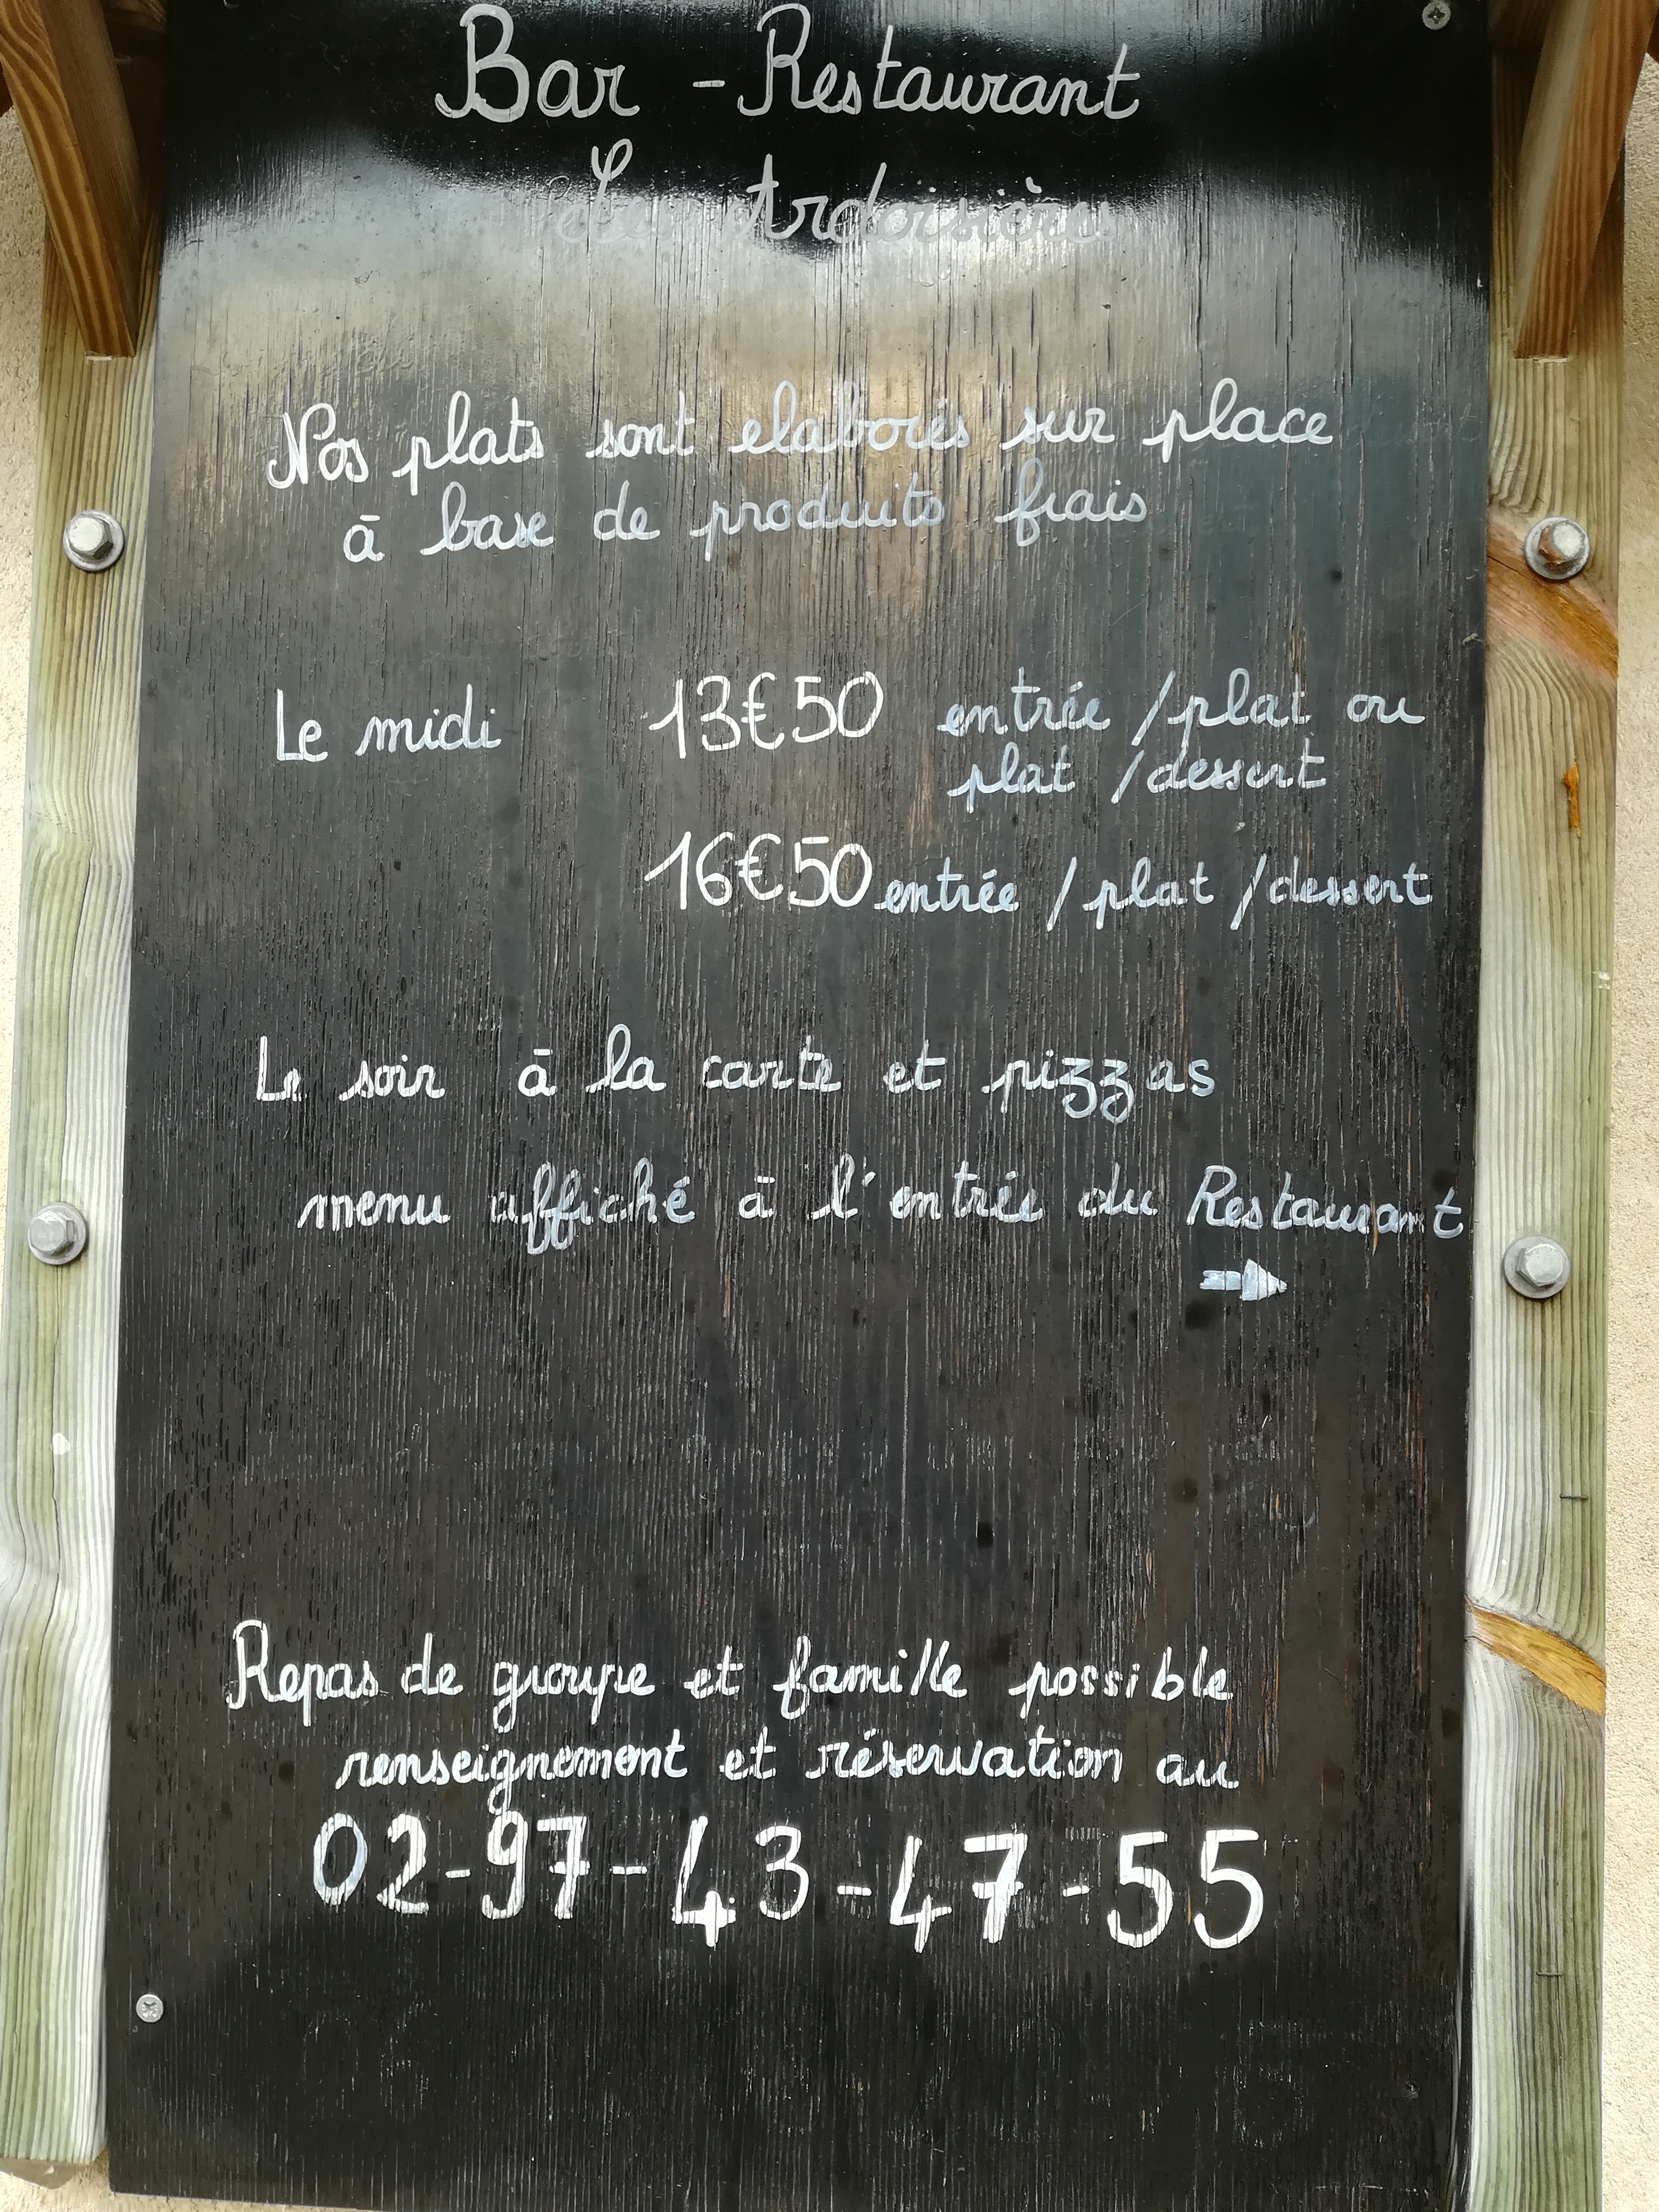 Bar - Restaurant
Les Ardoisières
Nos plats sont elaborés sur place
à base de produits frais
Le midi 13€50 entrée / plat ou
plat / dessert
16€50 entrée / plat / dessert
Le soir à la carte et pizzas
menu affiché à l'entrée du Restaurant
Repas de groupe et famille possible
renseignement et réservation au
02-97-43-47-55